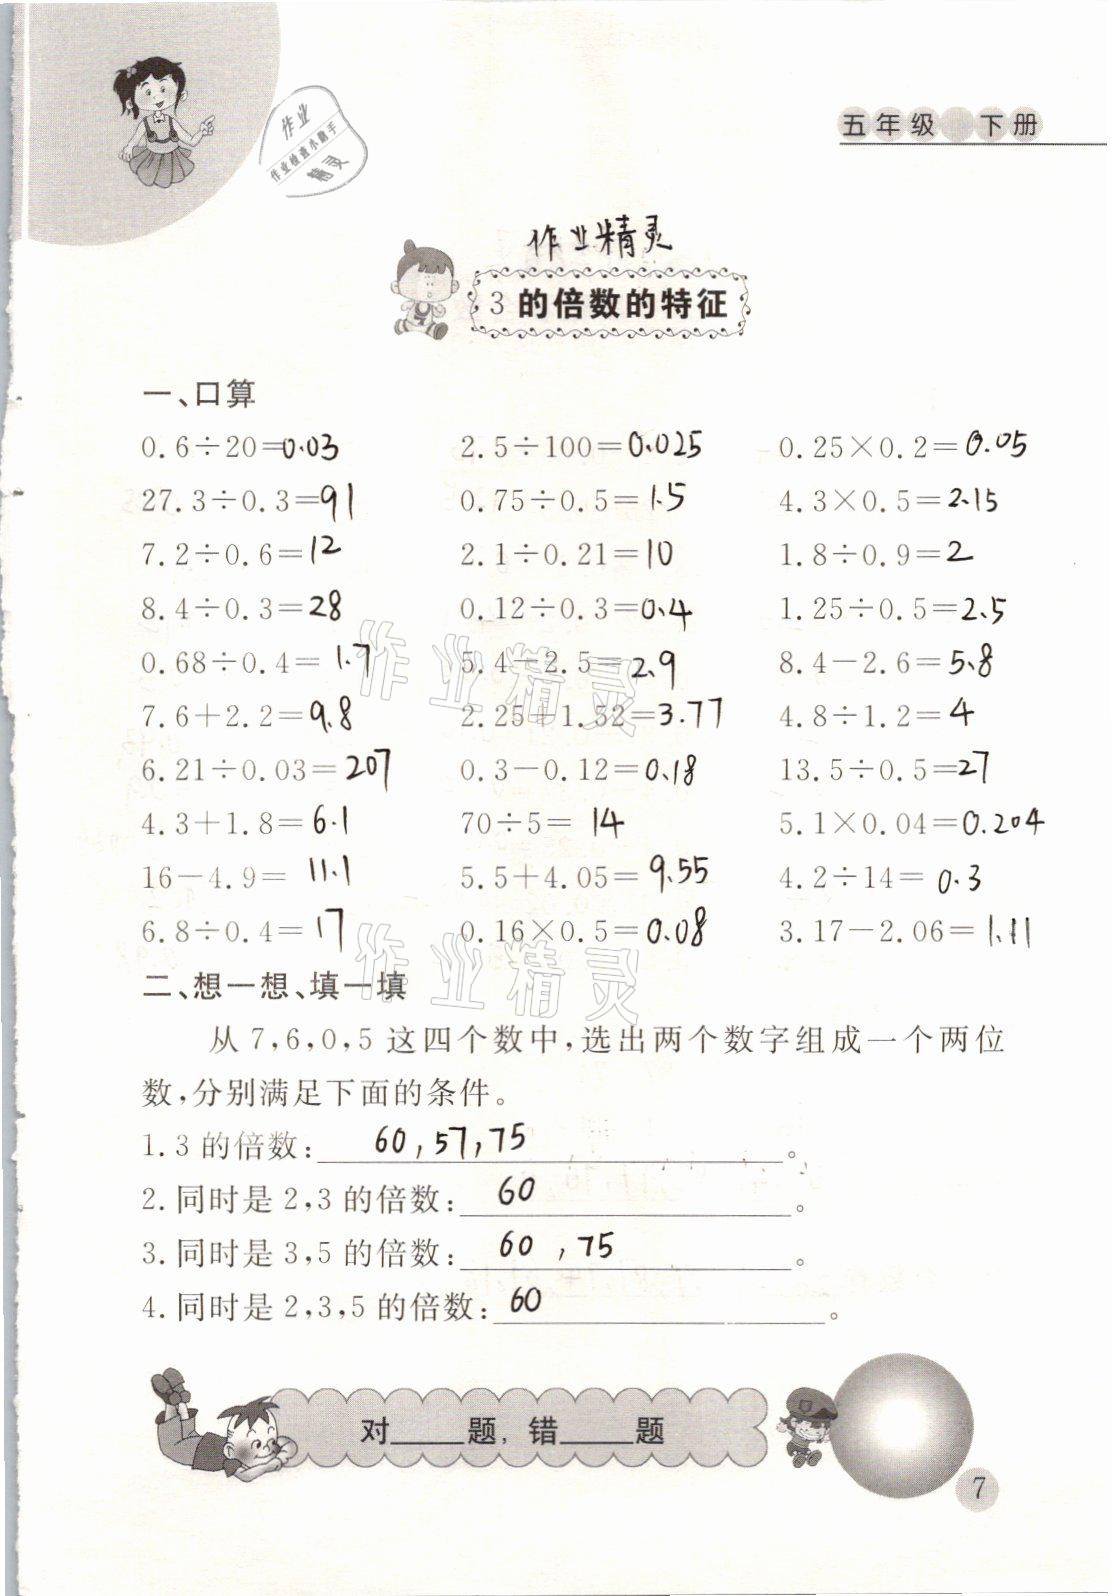 作业
作业检查小助手
精灵
五年级 下册
作业精灵
3的倍数的特征
一、口算
0.6÷20=0.03 2.5÷100=0.025 0.25×0.2=0.05
27.3÷0.3=91 0.75÷0.5=1.5 4.3×0.5=2.15
7.2÷0.6=12 2.1÷0.21=10 1.8÷0.9=2
8.4÷0.3=28 0.12÷0.3=0.4 1.25÷0.5=2.5
0.68÷0.4=1.7 5.4-2.5=2.9 8.4-2.6=5.8
7.6+2.2=9.8 2.25+1.52=3.77 4.8÷1.2=4
6.21÷0.03=207 0.3-0.12=0.18 13.5÷0.5=27
4.3+1.8=6.1 70÷5=14 5.1×0.04=0.204
16-4.9=11.1 5.5+4.05=9.55 4.2÷14=0.3
6.8÷0.4=17 0.16×0.5=0.08 3.17-2.06=1.11
作业精灵
作业精灵
二、想一想、填一填
从7,6,0,5这四个数中,选出两个数字组成一个两位
数,分别满足下面的条件。
1.3的倍数:60,57,75。
2.同时是2,3的倍数:60。
3.同时是3,5的倍数:60,75。
4.同时是2,3,5的倍数:60。
对____题,错____题
7